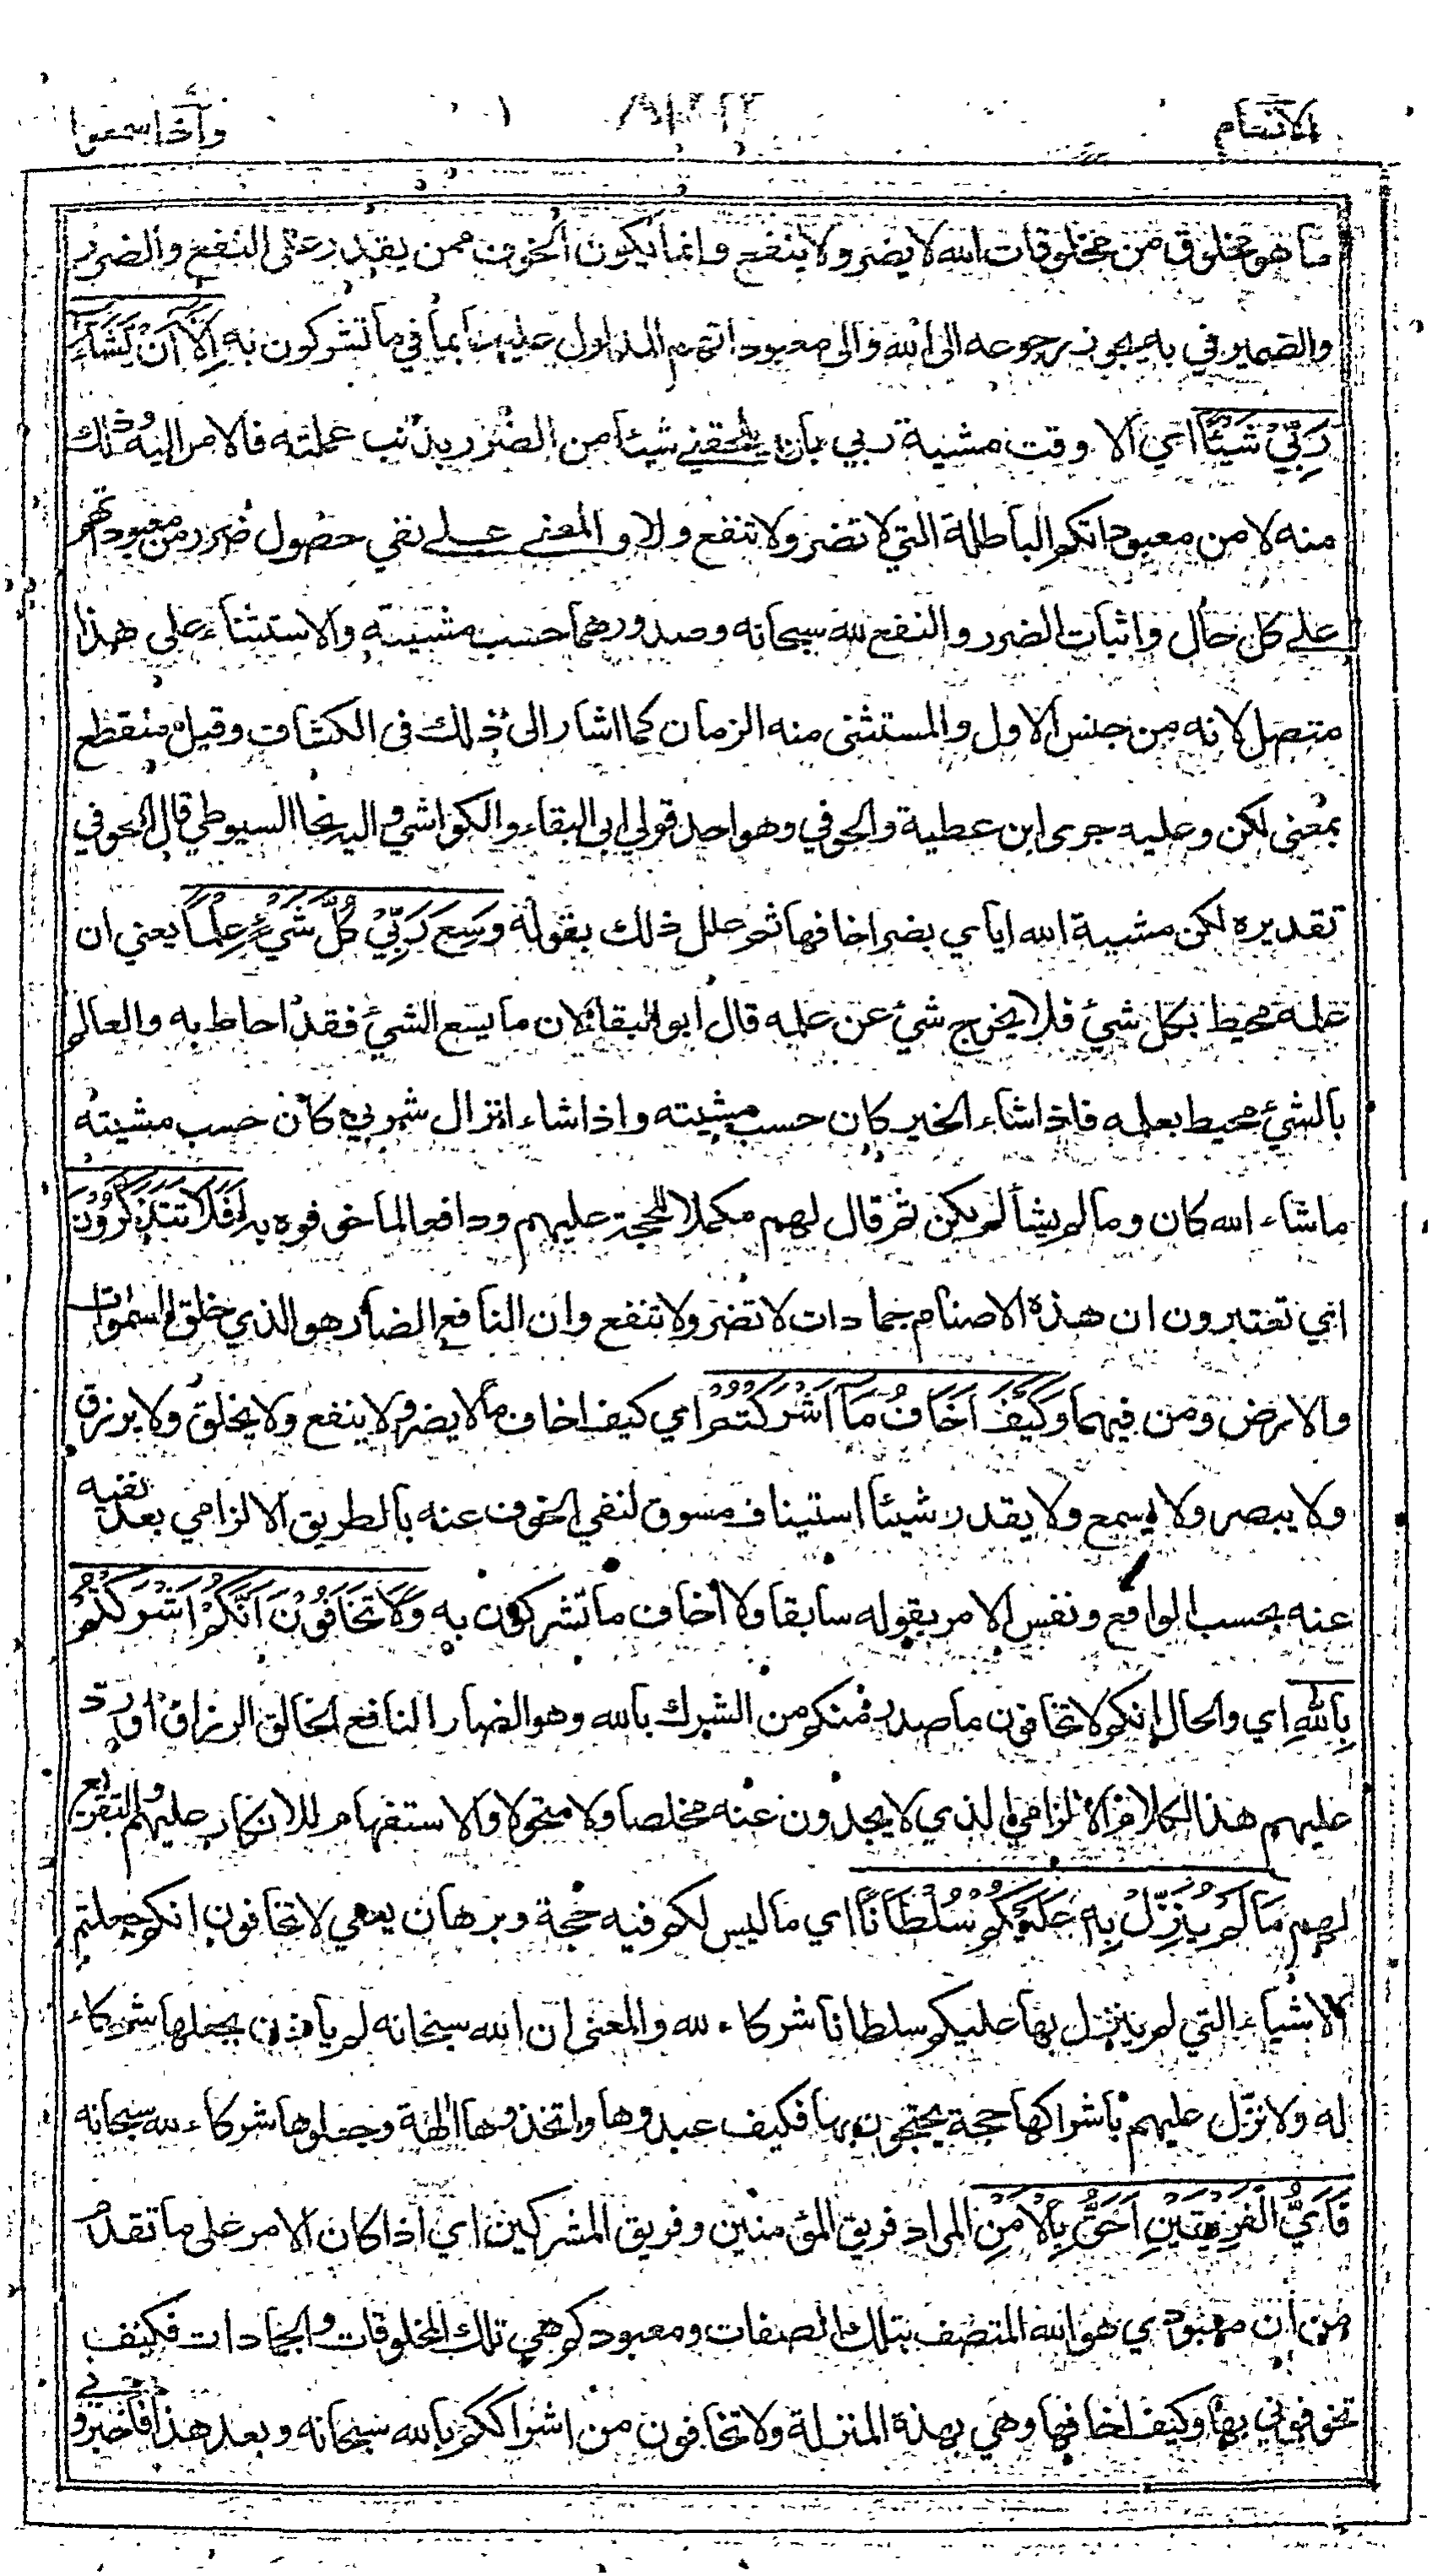 الانعام
واذا سمعوا
ما هو مخلوق من مخلوقات الله لا يضر ولا ينفع وانما يكون الخوف ممن يقدر على النفع والضرر
والضمير في به يجوز رجوعه الى الله والى معبوداتهم المدلول عليها بما في ما تشركون به اِلَّآ اَنْ يَّشَآءَ
رَبِّيْ شَيْئًا اي الا وقت مشيئة ربي بأن يلحقني شيئا من الضرر بذنب عملته فالامر اليه وذلك
منه لا من معبوداتكم الباطلة التي لا تضر ولا تنفع ولا والمعنى على نفي حصول ضرر من معبوداتهم
على كل حال واثبات الضرر والنفع لله سبحانه وصدورهما حسب مشيئته والاستثناء على هذا
متصل لانه من جنس الاول والمستثنى منه الزمان كما اشار الى ذلك في الكشاف وقيل منقطع
بمعنى لكن وعليه جرى ابن عطية والحوفي وهو احد قولي ابي البقاء والكواشي واليه نحا السيوطي قال الحوفي
تقديره لكن مشيئة الله اياي بضر اخافها ثم علل ذلك بقوله وَسِعَ رَبِّيْ كُلَّ شَيْءٍ عِلْمًا يعني ان
علمه محيط بكل شيء فلا يخرج شيء عن علمه قال ابو البقاء لان ما يسع الشيء فقد احاط به والعالم
بالشيء محيط بعلمه فاذا شاء الخير كان حسب مشيته واذا شاء انزال شر بي كان حسب مشيته
ماشاء الله كان وما لم يشأ لم يكن ثم قال لهم مكملا للحجة عليهم ودافعا لما خوفوه به اَفَلَا تَتَذَكَّرُوْنَ
اي تعتبرون ان هذه الاصنام جمادات لا تضر ولا تنفع وان النافع الضار هو الذي خلق السموات
والارض ومن فيهما وَكَيْفَ اَخَافُ مَآ اَشْرَكْتُمْ اي كيف اخاف ما لا يضر ولا ينفع ولا يخلق ولا يرزق
ولا يبصر ولا يسمع ولا يقدر شيئا استيناف مسوق لنفي الخوف عنه بالطريق الالزامي بعد نفيه
عنه بحسب الواقع ونفس الامر بقوله سابقا ولا اخاف ما تشركون به وَلَا تَخَافُوْنَ اَنَّكُمْ اَشْرَكْتُمْ
بِاللّٰهِ اي والحال انكم لا تخافون ما صدر منكم من الشرك بالله وهو الضار النافع الخالق الرزاق اورد
عليهم هذا الكلام الالزامي الذي لا يجدون عنه مخلصا ولا متحولا والاستفهام للانكار عليهم والتقريع
لهم مَا لَمْ يُنَزِّلْ بِهٖ عَلَيْكُمْ سُلْطَانًا اي ما ليس لكم فيه حجة وبرهان يعني لا تخافون انكم جعلتم
الاشياء التي لم ينزل بها عليكم سلطانا شركاء لله والمعنى ان الله سبحانه لم يأذن بجعلها شركاء
له ولا نزّل عليهم باشراكها حجة يحتجون بها فكيف عبدوها واتخذوها الهة وجعلوها شركاء لله سبحانه
فَاَيُّ الْفَرِيْقَيْنِ اَحَقُّ بِالْاَمْنِ المراد فريق المؤمنين وفريق المشركين اي اذا كان الامر على ما تقدم
من ان معبودي هو الله المتصف بتلك الصفات ومعبودكم هي تلك المخلوقات والجمادات فكيف
تخوفوني بها وكيف اخافها وهي بهذة المنزلة ولا تخافون من اشراككم بالله سبحانه وبعد هذا فاخبروني